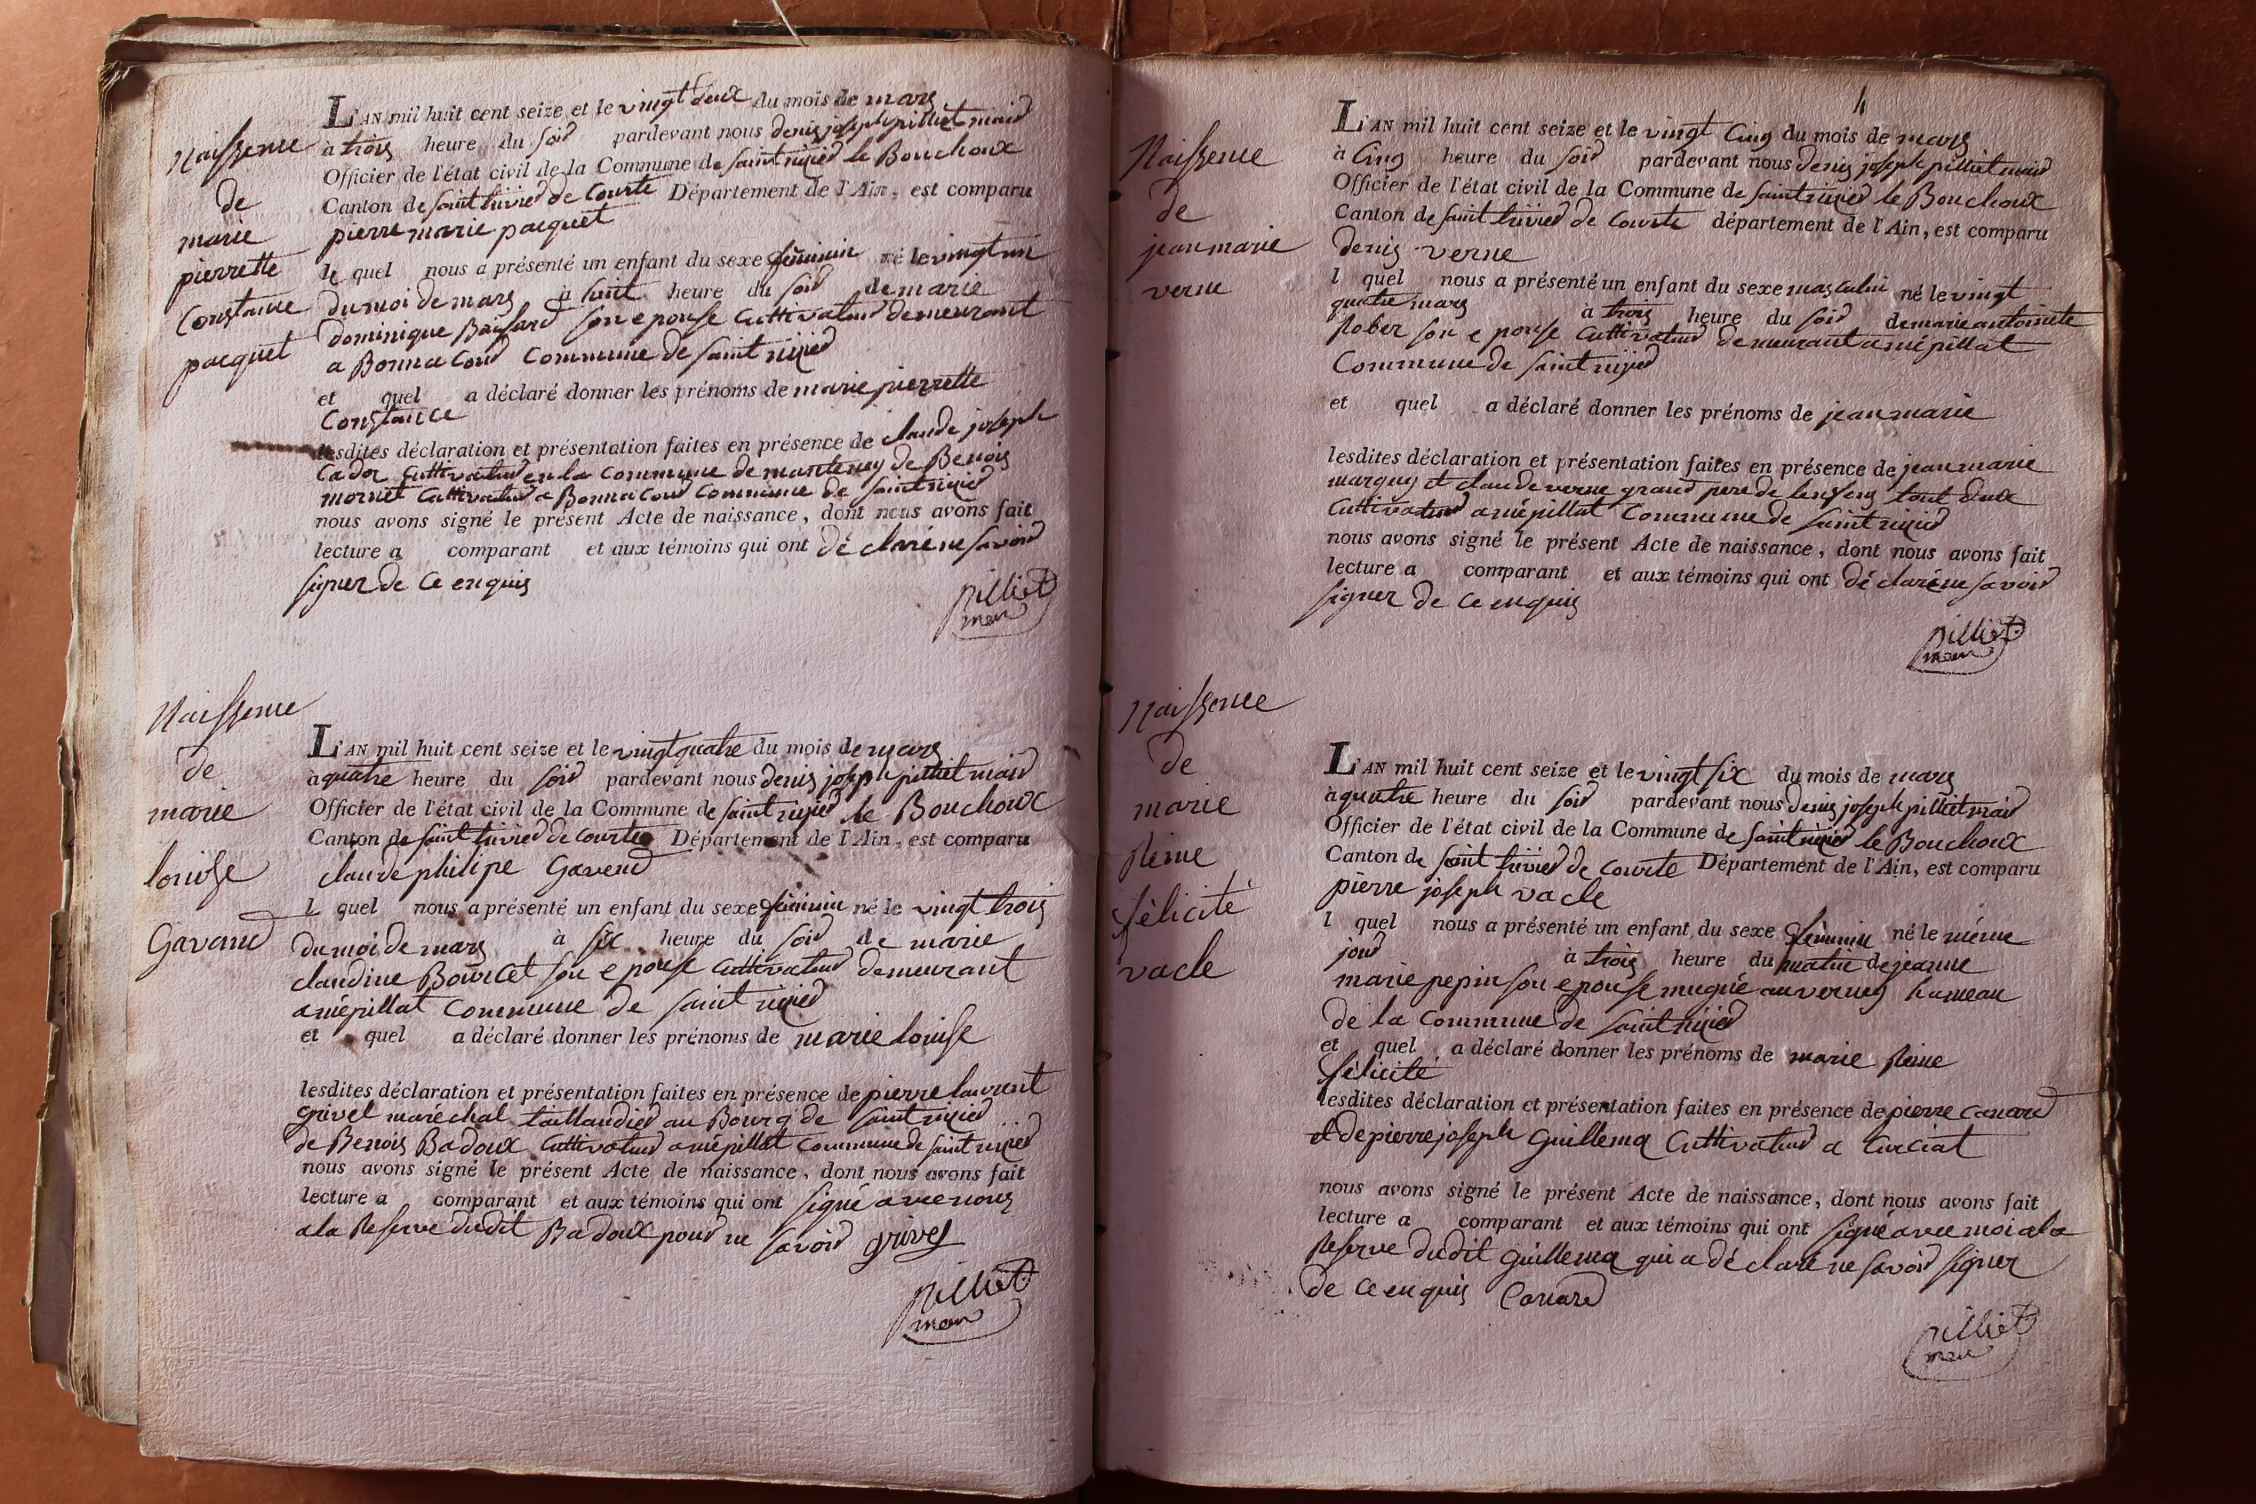 Naissence
de
marie
pierrette
Constance
pacquet
L'AN mil huit cent seize et le vingt deux du mois de mars
à trois heure du soir pardevant nous denis joseph pilliet mair
Officier de l'état civil de la Commune de saint nizier le Bouchoux
Canton de saint trivier de Courte Département de l'Ain, est comparu
pierre marie pacquet
le quel nous a présenté un enfant du sexe féminin né le vingt un
du moi de mars à huit heure du soir de marie
dominique Baissard son epouse Cultivateur demeurant
a Bonna Cour Commune de saint nizier
et quel a déclaré donner les prénoms de marie pierrette
Constance
lesdites déclaration et présentation faites en présence de claude joseph
Cador Cultivateur en la commune de manteney de Benois
mornet Cultivateur a Bonna Cour Commune de saint nizier
nous avons signé le présent Acte de naissance, dont nous avons fait
lecture a comparant et aux témoins qui ont dé claré ne savoir
signer de ce enquis
pilliet
mair
Naissence
de
marie
louise
Gavand
L'AN mil huit cent seize et le vingt quatre du mois de mars
à quatre heure du soir pardevant nous denis joseph pilliet mair
Officier de l'état civil de la Commune de saint nizier le Bouchoux
Canton de saint trivier de Courte Département de l'Ain, est comparu
claude philipe Gavend
l quel nous a présenté un enfant du sexe féminin né le vingt trois
du moi de mars à six heure du soir de marie
claudine Bourcet son epouse Cultivateur demeurant
a mépillat Commune de saint nizier
et quel a déclaré donner les prénoms de marie louise
lesdites déclaration et présentation faites en présence de pierre laurent
grivel maréchal taillandier au Bourg de saint nizier
de Benois Badoux Cultivateur a mépillat Commune de saint nizier
nous avons signé le présent Acte de naissance, dont nous avons fait
lecture a comparant et aux témoins qui ont signé avec nous
a la Reserve dudit Badoux pour ne savoir grivel
pilliet
mair
4
Naissence
de
jean marie
verne
L'AN mil huit cent seize et le vingt Cinq du mois de mars
à Cinq heure du soir pardevant nous denis joseph pilliet mair
Officier de l'état civil de la Commune de saint nizier le Bouchoux
Canton de saint trivier de Courte département de l'Ain, est comparu
denis verne
l quel nous a présenté un enfant du sexe masculin né le vingt
quatre mars à trois heure du soir de marie antoinette
Rober son epouse Cultivateur demeurant a mépillat
Commune de saint nizier
et quel a déclaré donner les prénoms de jean marie
lesdites déclaration et présentation faites en présence de jean marie
marquis et claude verne grand pere de lenfens tout deux
Cultivateur a mépillat Commune de saint nizier
nous avons signé le présent Acte de naissance, dont nous avons fait
lecture a comparant et aux témoins qui ont dé claré ne savoir
signer de ce enquis
pilliet
mair
Naissence
de
marie
Reine
félicité
vacle
L'AN mil huit cent seize et le vingt six du mois de mars
à quatre heure du soir pardevant nous denis joseph pilliet mair
Officier de l'état civil de la Commune de saint nizier le Bouchoux
Canton de saint trivier de Courte Département de l'Ain, est comparu
pierre joseph vacle
l quel nous a présenté un enfant du sexe féminin né le même
jour à trois heure du matin de jeanne
marie pepin son epouse au verney hameau
de la Commune de saint nizier
et quel a déclaré donner les prénoms de marie Reine
félicité
lesdites déclaration et présentation faites en présence de pierre Canard
et de pierre joseph Guillema Cultivateur a Curciat
nous avons signé le présent Acte de naissance, dont nous avons fait
lecture a comparant et aux témoins qui ont signé avec moi a la
Reserve dudit Guillema qui a dé claré ne savoir signer
de ce enquis Canard
pilliet
mair